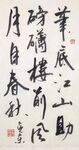 筆底江山助
磅礴樓前風
月自春秋